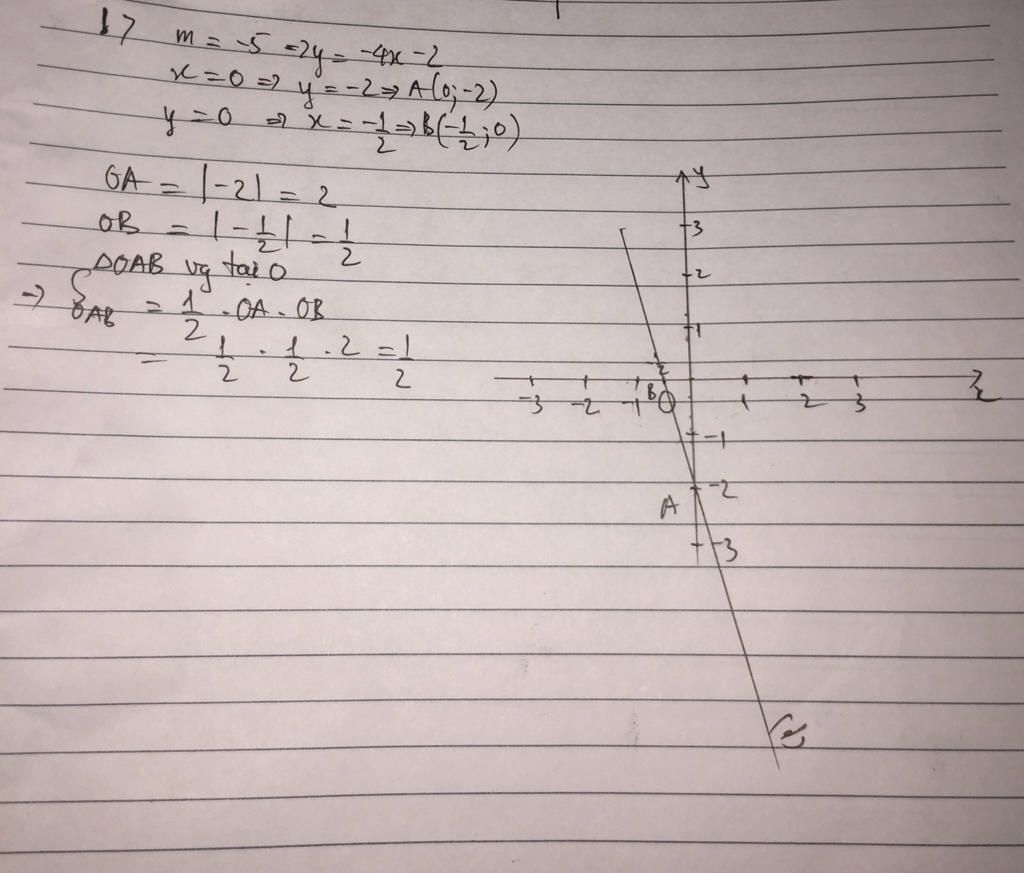 1> m = -5 => y = -4x - 2
x = 0 => y = -2 => A(0; -2)
y = 0 => x = -1/2 => B(-1/2; 0)
OA = |-2| = 2
OB = |-1/2| = 1/2
ΔOAB vg tại O
=> S OAB = 1/2 . OA . OB
= 1/2 . 1/2 . 2 = 1/2
y
3
2
1
-3 -2 -1 B O 1 2 3 x
-1
A -2
-3